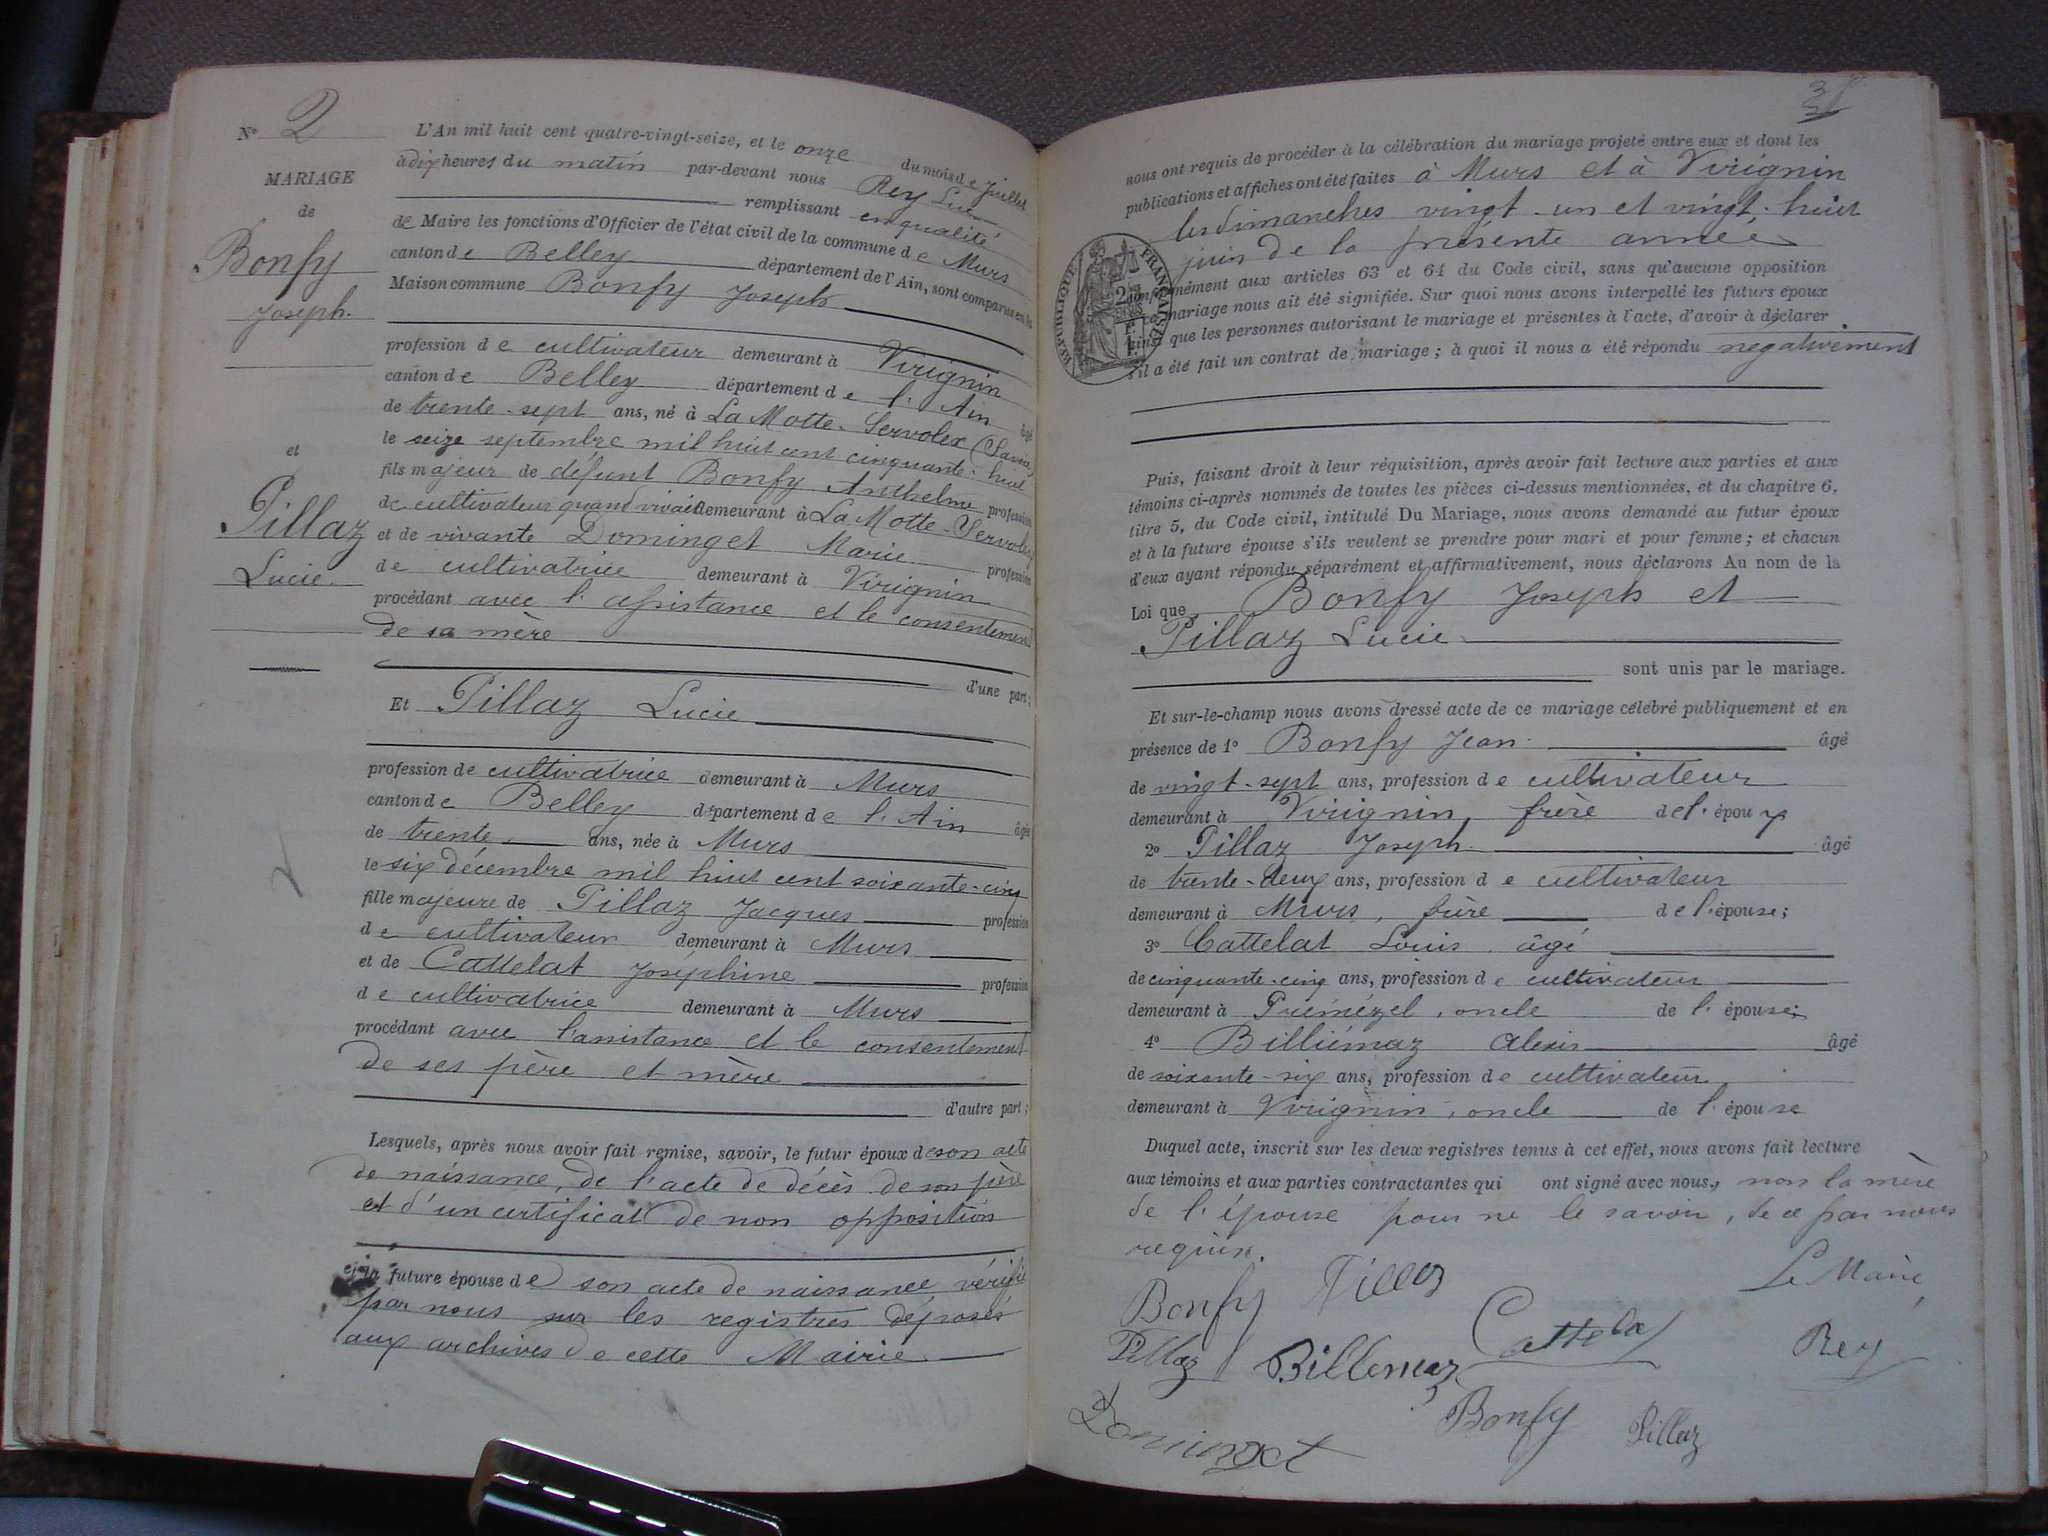 N° 2
MARIAGE
de
Bonfy
Joseph.
et
Pillaz
Lucie.
L'An mil huit cent quatre-vingt-seize, et le onze du mois de Juillet
à dix heures du matin par-devant nous Rey Luc
remplissant en qualité
de Maire les fonctions d'Officier de l'état civil de la commune de Murs
canton de Belley département de l'Ain, sont comparus en la
Maison commune Bonfy Joseph
profession de cultivateur demeurant à Virignin
canton de Belley département de l'Ain âgé
de trente-sept ans, né à La Motte-Servolex (Savoie)
le seize septembre mil huit cent cinquante-huit
fils majeur de défunt Bonfy Anthelme profession
de cultivateur quand vivait demeurant à La Motte-Servolex
et de vivante Dominget Marie profession
de cultivatrice demeurant à Virignin
procédant avec l'assistance et le consentement
de sa mère
d'une part;
Et Pillaz Lucie
profession de cultivatrice demeurant à Murs
canton de Belley département de l'Ain âgée
de trente ans, née à Murs
le six décembre mil huit cent soixante-cinq
fille majeure de Pillaz Jacques profession
de cultivateur demeurant à Murs
et de Cattelat Joséphine profession
de cultivatrice demeurant à Murs
procédant avec l'assistance et le consentement
de ses père et mère
d'autre part;
Lesquels, après nous avoir fait remise, savoir, le futur époux de son acte
de naissance, de l'acte de décès de son père
et d'un certificat de non opposition
et la future épouse de son acte de naissance, vérifié
par nous sur les registres déposés
aux archives de cette Mairie
nous ont requis de procéder à la célébration du mariage projeté entre eux et dont les
publications et affiches ont été faites à Murs et à Virignin
les dimanches vingt-un et vingt-huit
juin de la présente année
conformément aux articles 63 et 64 du Code civil, sans qu'aucune opposition
ce mariage nous ait été signifiée. Sur quoi nous avons interpellé les futurs époux
ainsi que les personnes autorisant le mariage et présentes à l'acte, d'avoir à déclarer
s'il a été fait un contrat de mariage; à quoi il nous a été répondu negativement
RÉPUBLIQUE FRANÇAISE
Puis, faisant droit à leur réquisition, après avoir fait lecture aux parties et aux
témoins ci-après nommés de toutes les pièces ci-dessus mentionnées, et du chapitre 6,
titre 5, du Code civil, intitulé Du Mariage, nous avons demandé au futur époux
et à la future épouse s'ils veulent se prendre pour mari et pour femme; et chacun
d'eux ayant répondu séparément et affirmativement, nous déclarons Au nom de la
Loi que Bonfy Joseph et
Pillaz Lucie
sont unis par le mariage.
Et sur-le-champ nous avons dressé acte de ce mariage célébré publiquement et en
présence de 1° Bonfy Jean âgé
de vingt-sept ans, profession de cultivateur
demeurant à Virignin, frère de l'époux
2° Pillaz Joseph âgé
de trente-deux ans, profession de cultivateur
demeurant à Murs, frère de l'épouse;
3° Cattelat Louis âgé
de cinquante-cinq ans, profession de cultivateur
demeurant à Prémézel, oncle de l'épouse;
4° Billiémaz Alexis âgé
de soixante-six ans, profession de cultivateur
demeurant à Virignin, oncle de l'épouse
Duquel acte, inscrit sur les deux registres tenus à cet effet, nous avons fait lecture
aux témoins et aux parties contractantes qui ont signé avec nous, non la mère
de l'épouse pour ne le savoir, de ce par nous
requise.
Bonfy Pillaz Le Maire,
Pillaz Billemaz Cattelat Rey
Dominget Bonfy Pillaz